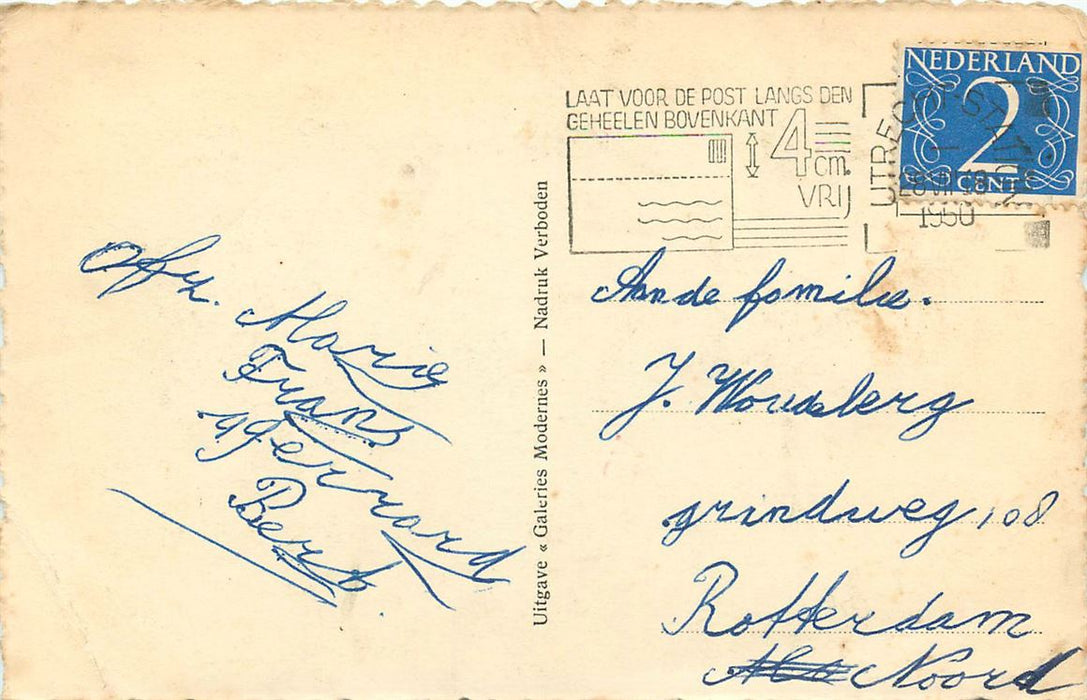 Afz. Marie
Frans
ggerrard
Bert.
Uitgave « Galeries Modernes » — Nadruk Verboden
LAAT VOOR DE POST LANGS DEN
GEHEELEN BOVENKANT
4 cm.
VRIJ
UTRECHT-STATION
28 VII 18
1950
NEDERLAND
2
CENT
Aan de familie.
J. Woudsberg
grindweg 108
Rotterdam
Noord